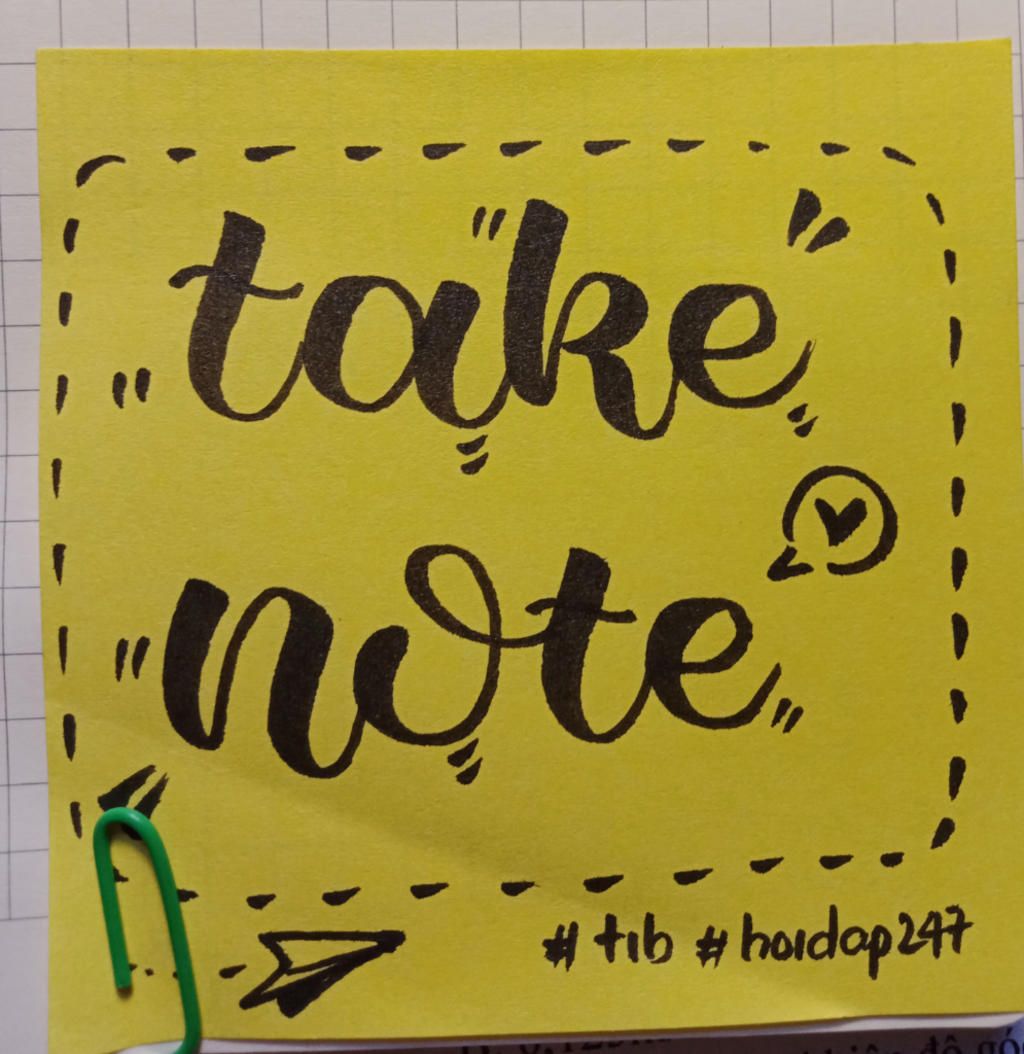 take
note
# tib # hoidap247